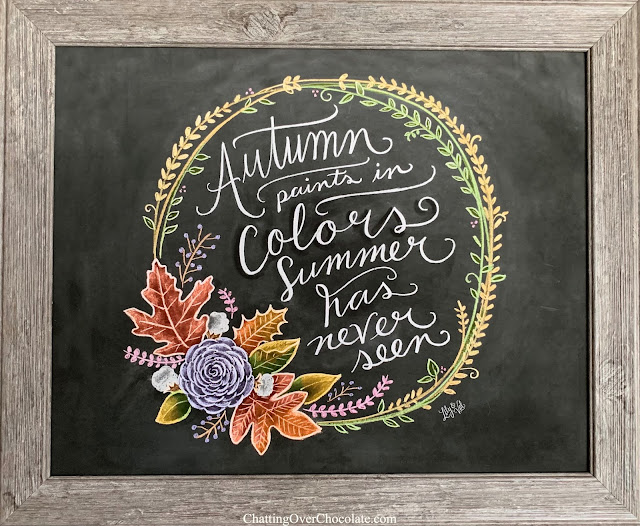 Autumn
paints in
Colors
Summer
has
never
seen
Lily & Val
ChattingOverChocolate.com